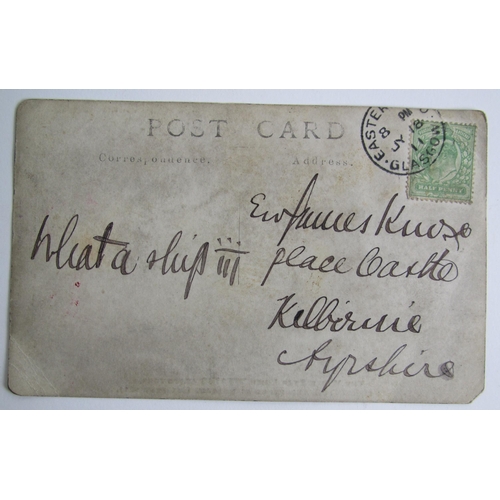 POST CARD
Correspondence.
Address.
EASTER
GLASGOW
8 PM
JY 18
11
HALF PENNY
What a ship !!!
James Knox
place Castle
Kilbirnie
Ayrshire